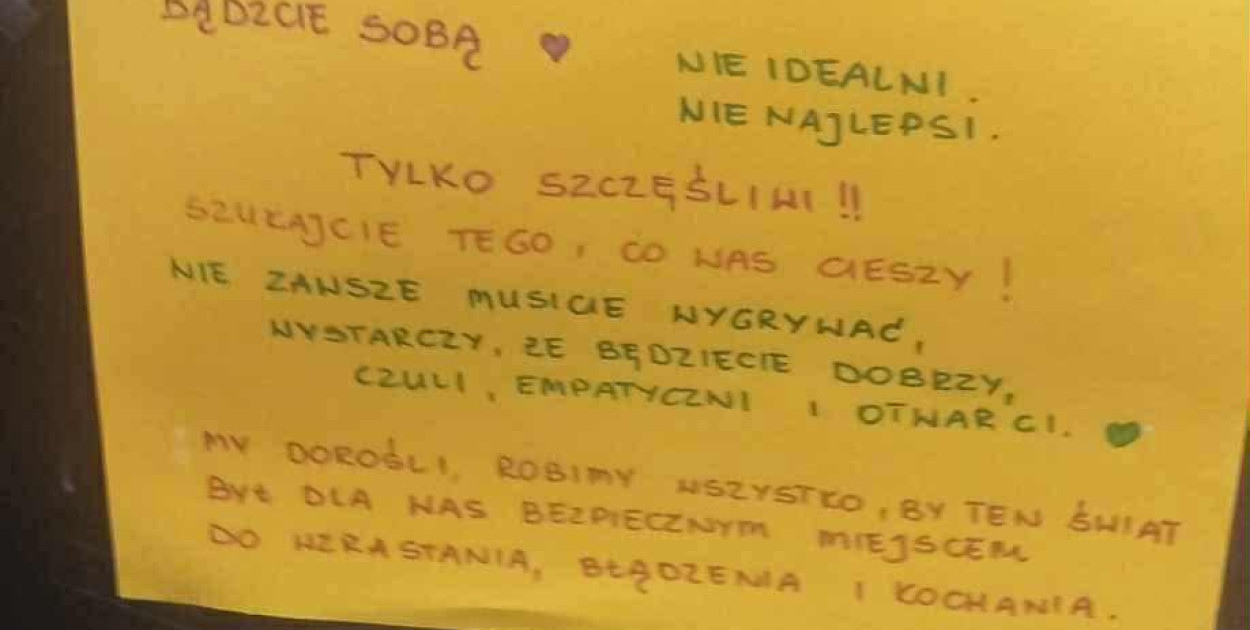 BĄDŹCIE SOBĄ ♥
NIE IDEALNI.
NIE NAJLEPSI.
TYLKO SZCZĘŚLIWI !!
SZUKAJCIE TEGO, CO WAS CIESZY !
NIE ZAWSZE MUSICIE WYGRYWAĆ,
WYSTARCZY, ŻE BĘDZIECIE DOBRZY,
CZULI, EMPATYCZNI I OTWARCI. ♥
MY DOROŚLI, ROBIMY WSZYSTKO, BY TEN ŚWIAT
BYŁ DLA WAS BEZPIECZNYM MIEJSCEM
DO WZRASTANIA, BŁĄDZENIA I KOCHANIA.